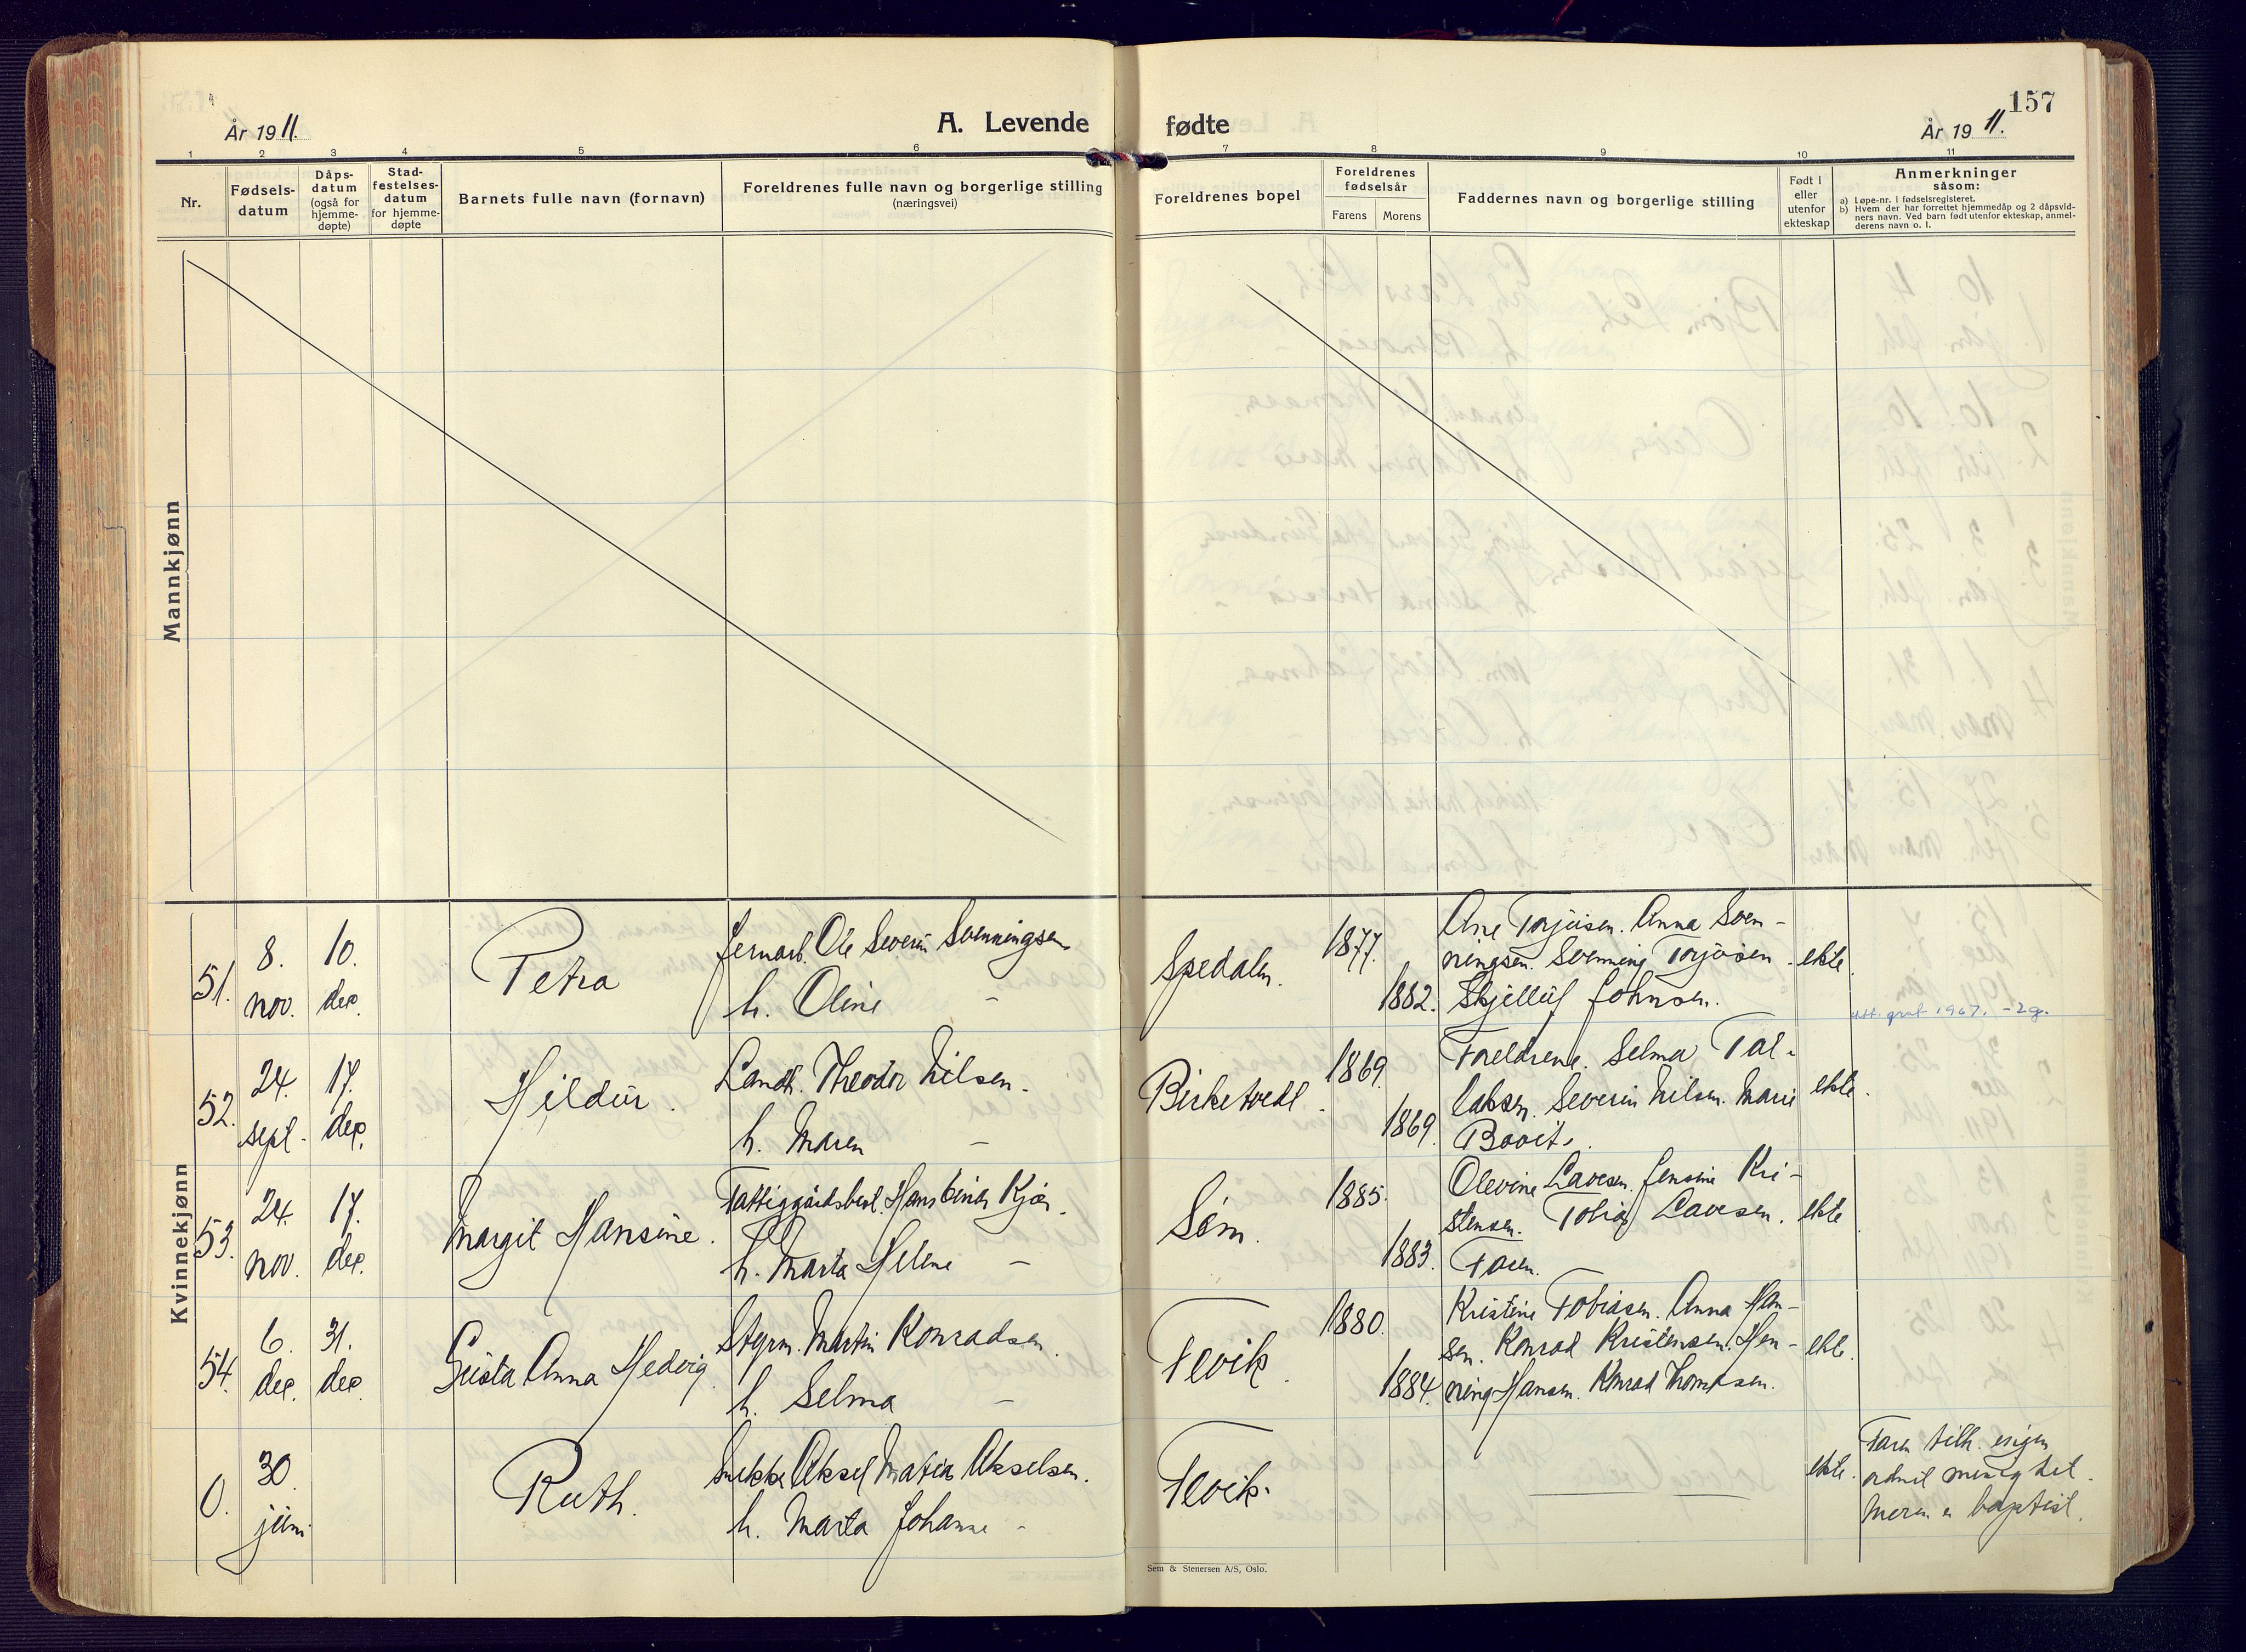 157
År 1911.
A. Levende
fødte
År 1911.
1 2 3 4 5 6 7 8 9 10 11
Nr.
Fødsels-
datum
Dåps-
datum
(også for
hjemme-
døpte)
Stad-
festelses-
datum
for hjemme-
døpte
Barnets fulle navn (fornavn)
Foreldrenes fulle navn og borgerlige stilling
(næringsvei)
Foreldrenes bopel
Foreldrenes
fødselsår
Farens Morens
Faddernes navn og borgerlige stilling
Født i
eller
utenfor
ekteskap
Anmerkninger
såsom:
a) Løpe-nr. i fødselsregisteret.
b) Hvem der har forrettet hjemmedåp og 2 dåpsvid-
ners navn. Ved barn født utenfor ekteskap, anmel-
derens navn o. l.
Mannkjønn
Kvinnekjønn
51.
8.
nov.
10.
dec.
Petra
Jernarb. Ole Severin Svenningsen
h. Oline -
Spedalen.
1877.
1882.
Ane Torjusen. Anna Sven-
ningsen. Svenning Torjusen.
Skjelluf Johnsen.
ekte.
utt. grat 1967.
52.
24.
sept.
17.
dec.
Hildur.
Landh. Theodor Nilsen.
h. Maren -
Birketvedt.
1869.
1869.
Foreldrene. Selma Tal-
laksen. Severin Nilsen. Marie
ekte.
53.
24.
nov.
17.
dec.
Margit Hansine.
Fattiggårdsbest. Hans Einar Kjær.
h. Marta Helene -
Søm.
1885.
1883.
Olevine Lauesen. Jensine Kri-
stensen. Tobias Lauesen.
Faren.
ekte
54.
6.
dec.
31.
dec.
Gusta Anna Hedvig.
Styrm. Martin Konradsen.
h. Selma -
Fevik.
1880.
1884.
Kristine Tobiasen. Anna Han-
sen. Konrad Kristensen. Hen-
ning Hansen. Konrad Thomasen.
ekte.
0.
30.
juni
Ruth.
Snekker Aksel Matias Akselsen.
h. Marta Johanne -
Fevik.
ekte.
Faren tilh. ingen
ordnet menighet.
Moren er baptist.
Sem & Stenersen A/S, Oslo.